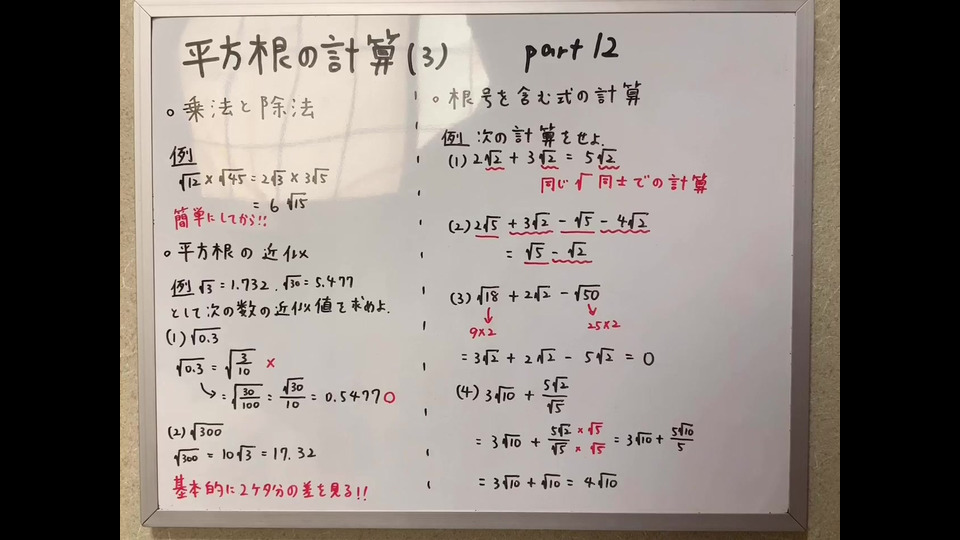 平方根の計算(3) part 12
◦ 乗法と除法
例
√12 × √45 = 2√3 × 3√5
= 6√15
簡単にしてから!!
◦ 平方根の近似
例 √3 = 1.732. √30 = 5.477
として次の数の近似値を求めよ.
(1) √0.3
√0.3 = √(3/10) ×
→ = √(30/100) = √30/10 = 0.5477 ○
(2) √300
√300 = 10√3 = 17.32
基本的に2ケタ分の差を見る!!
◦ 根号を含む式の計算
例 次の計算をせよ.
(1) 2√2 + 3√2 = 5√2
同じ√同士での計算
(2) 2√5 + 3√2 - √5 - 4√2
= √5 - √2
(3) √18 + 2√2 - √50
9×2 25×2
= 3√2 + 2√2 - 5√2 = 0
(4) 3√10 + 5√2/√5
= 3√10 + 5√2/√5 ×√5/×√5 = 3√10 + 5√10/5
= 3√10 + √10 = 4√10